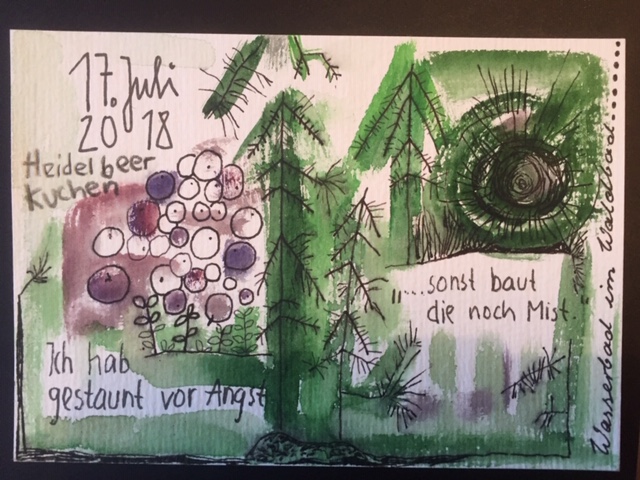 17. Juli
2018
Heidelbeer
Kuchen
Ich hab
gestaunt vor Angst
„...sonst baut
die noch Mist.
Wasserbad im Waldbad.......